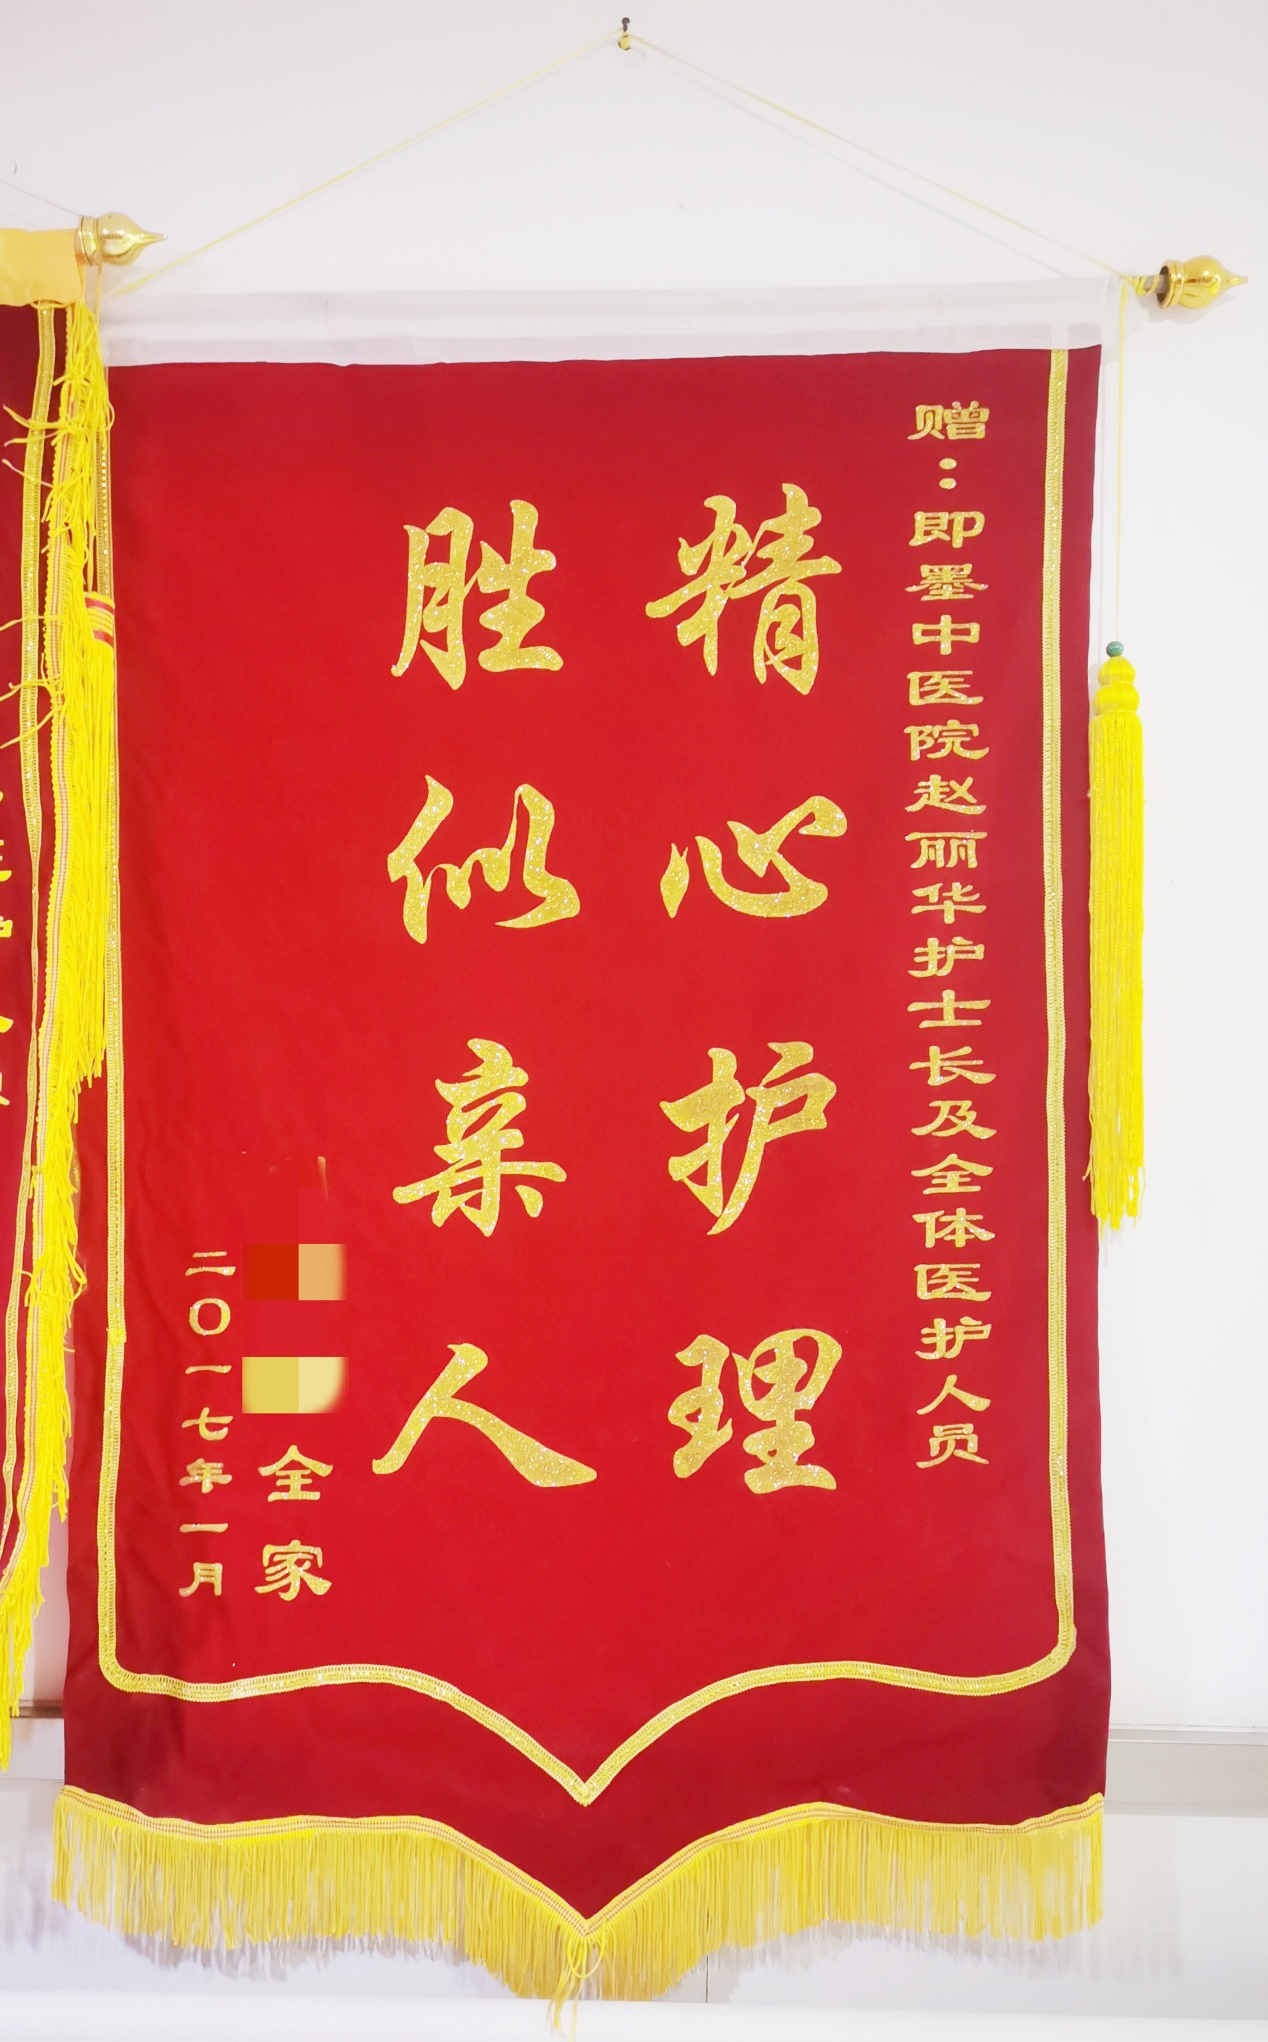 赠：即墨中医院赵丽华护士长及全体医护人员
精心护理
胜似亲人
全家
二〇一七年一月